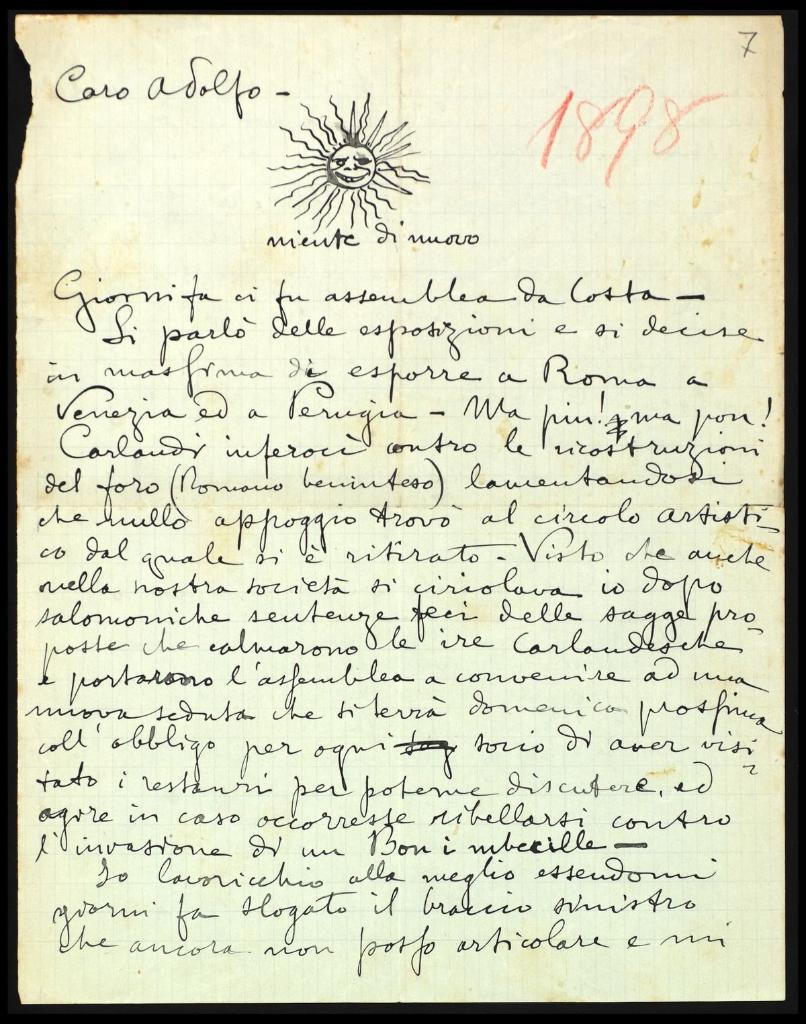 7
Caro Adolfo -
1898
niente di nuovo
Giorni fa ci fu assemblea da Costa —
Si parlò delle esposizioni e si decise
in massima di esporre a Roma a
Venezia ed a Perugia - Ma piu! ma pou!
Carlandi inferocì contro le ricostruzioni
del foro (Romano beninteso) lamentandosi
che nullo appoggio trovò al circolo artisti-
co dal quale si è ritirato - Visto che anche
nella nostra società si ciriolava io dopo
salomoniche sentenze feci delle sagge pro-
poste che calmarono le ire Carlandesche
e portarono l'assemblea a convenire ad una
nuova seduta che si terrà domenica prossima
coll'obbligo per ogni socio di aver visi-
tato i restauri per poterne discutere, ed
agire in caso occorresse ribellarsi contro
l'invasione di un Boni imbecille —
Io lavoricchio alla meglio essendomi
giorni fa slogato il braccio sinistro
che ancora non posso articolare e mi